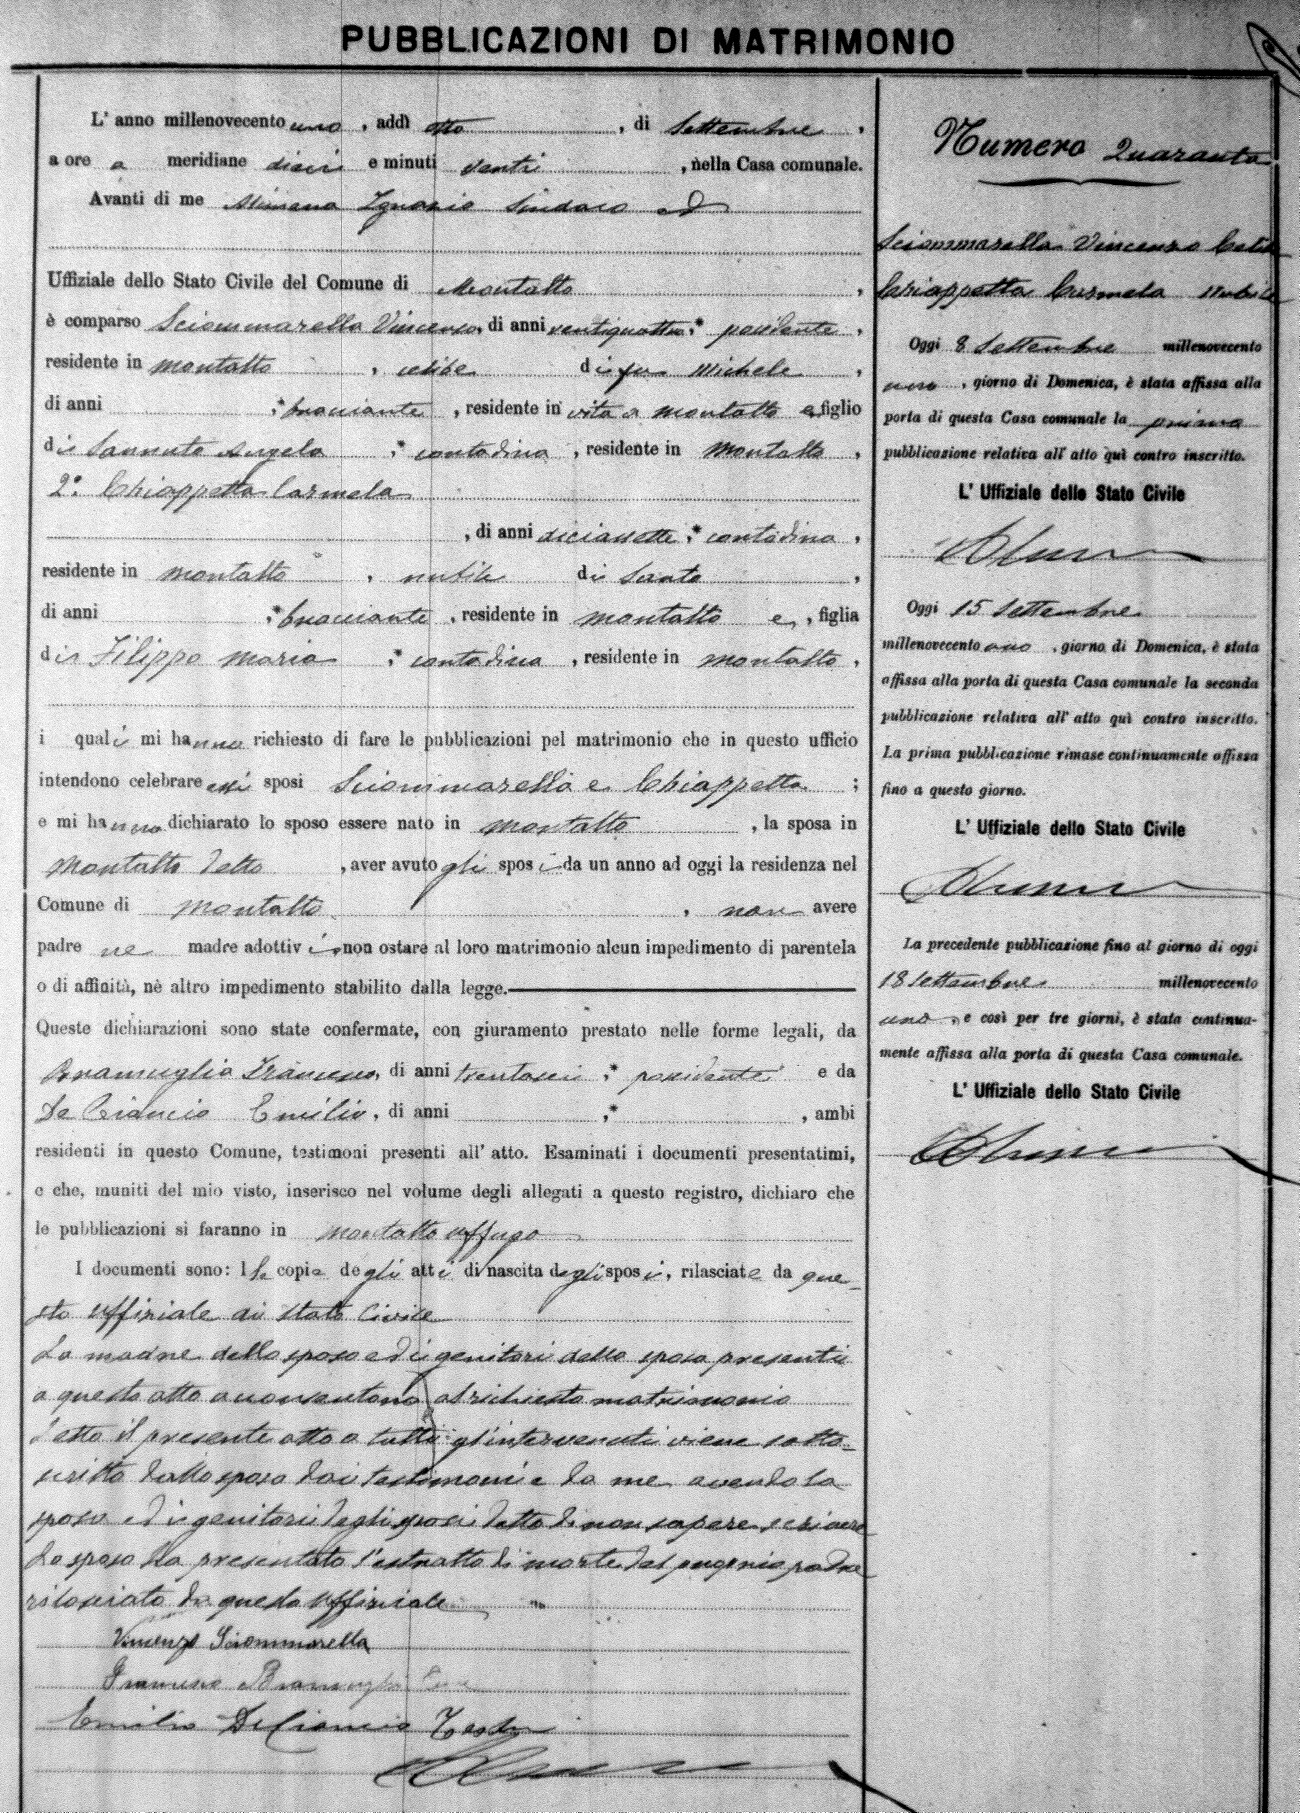 PUBBLICAZIONI DI MATRIMONIO
L' anno millenovecento uno, addì otto, di Settembre,
a ore a meridiane dieci e minuti venti, nella Casa comunale.
Avanti di me Ignazio Sindaco ed
Uffiziale dello Stato Civile del Comune di Montalto,
è comparso Sciommarella Vincenzo, di anni ventiquattro,* possidente,
residente in Montalto, celibe di fu Michele,
di anni ,* bracciante, residente in vita a Montalto e, figlio
di Sannuto Angela ,* contadina, residente in Montalto,
2° Chiappetta Carmela
, di anni diciassette,* contadina,
residente in Montalto, nubile di Santo,
di anni ,* bracciante, residente in Montalto e, figlia
di Filippo Maria ,* contadina, residente in Montalto,
i quali mi hanno richiesto di fare le pubblicazioni pel matrimonio che in questo ufficio
intendono celebrare essi sposi Sciommarella e Chiappetta ;
e mi hanno dichiarato lo sposo essere nato in Montalto, la sposa in
Montalto detto, aver avuto gli sposi da un anno ad oggi la residenza nel
Comune di Montalto, non avere
padre ne madre adottivi, non ostare al loro matrimonio alcun impedimento di parentela
o di affinità, nè altro impedimento stabilito dalla legge.
Queste dichiarazioni sono state confermate, con giuramento prestato nelle forme legali, da
Bramuglia Francesco, di anni trentasei,* possidente e da
De Ciancio Emilio, di anni ,* , ambi
residenti in questo Comune, testimoni presenti all' atto. Esaminati i documenti presentatimi,
e che, muniti del mio visto, inserisco nel volume degli allegati a questo registro, dichiaro che
le pubblicazioni si faranno in Montalto Uffugo
I documenti sono: 1 le copie degli atti di nascita degli sposi, rilasciate da que-
sto uffiziale di stato Civile
La madre dello sposo ed i genitori della sposa presenti
a questo atto acconsentono al richiesto matrimonio
Letto il presente atto a tutti gl'intervenuti viene sotto-
scritto dallo sposo dai testimoni e da me avendo la
sposa ed i genitori degli sposi detto di non sapere scrivere
Lo sposo ha presentato l'estratto di morte del padre
rilasciato da questo Uffiziale
Vincenzo Sciommarella
Francesco Bramuglia
Emilio De Ciancio
Numero Quaranta
Sciommarella Vincenzo Celibe
Chiappetta Carmela nubile
Oggi 8 Settembre millenovecento
uno, giorno di Domenica, è stata affissa alla
porta di questa Casa comunale la prima
pubblicazione relativa all' atto quì contro inscritto.
L' Uffiziale dello Stato Civile
Oggi 15 Settembre
millenovecento uno, giorno di Domenica, è stata
affissa alla porta di questa Casa comunale la seconda
pubblicazione relativa all' atto quì contro inscritto.
La prima pubblicazione rimase continuamente affissa
fino a questo giorno.
L' Uffiziale dello Stato Civile
La precedente pubblicazione fino al giorno di oggi
18 Settembre millenovecento
uno, e così per tre giorni, è stata continua-
mente affissa alla porta di questa Casa comunale.
L' Uffiziale dello Stato Civile